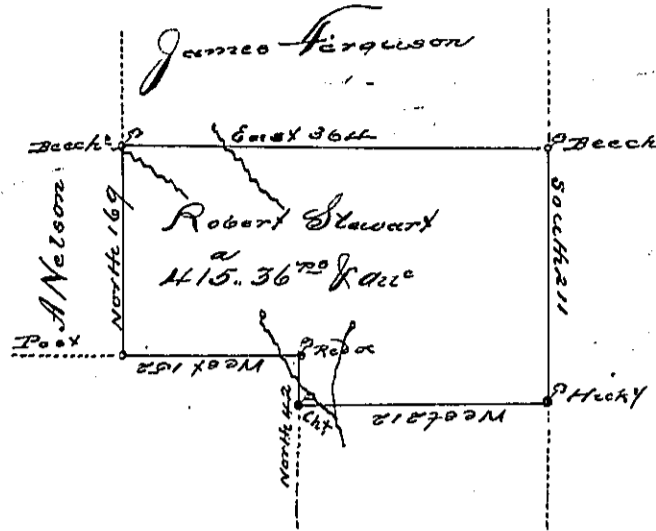 James Ferguson
Beech
East 364
Beech
A Nelson
North 169
Robert Stewart
415a..36ps & allc
South 211
Post
West 152
Red o
North 42
Cht
West 212
Hicky